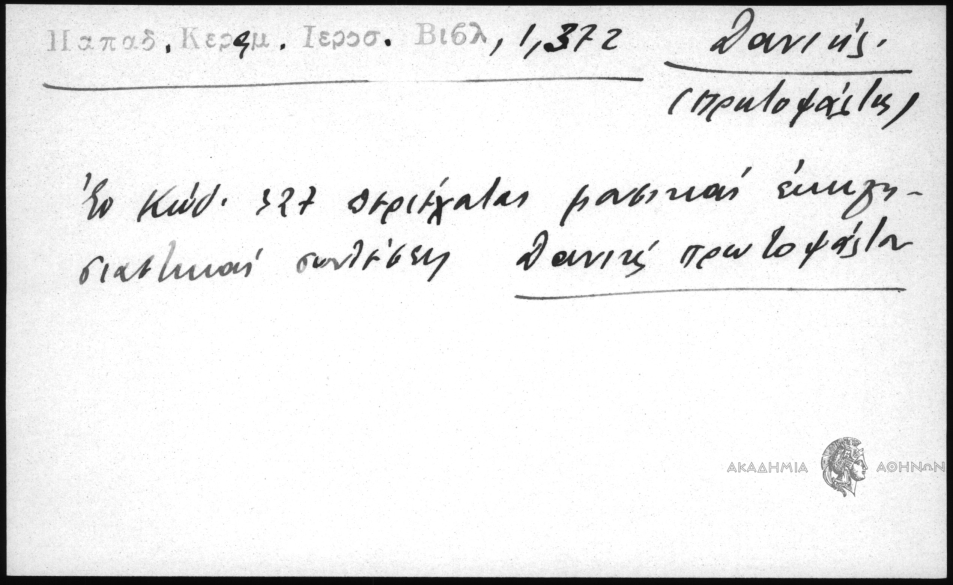 Παπαδ. Κεραμ. Ιεροσ. Βιβλ, 1,372 Δανιήλ.
(πρωτοψάλτης)
Ἐν Κώδ. 327 περιέχονται μουσικαί ἐκκλη-
σιαστικαί συνθέσεις Δανιήλ πρωτοψάλτου
ΑΚΑΔΗΜΙΑ ΑΘΗΝΩΝ